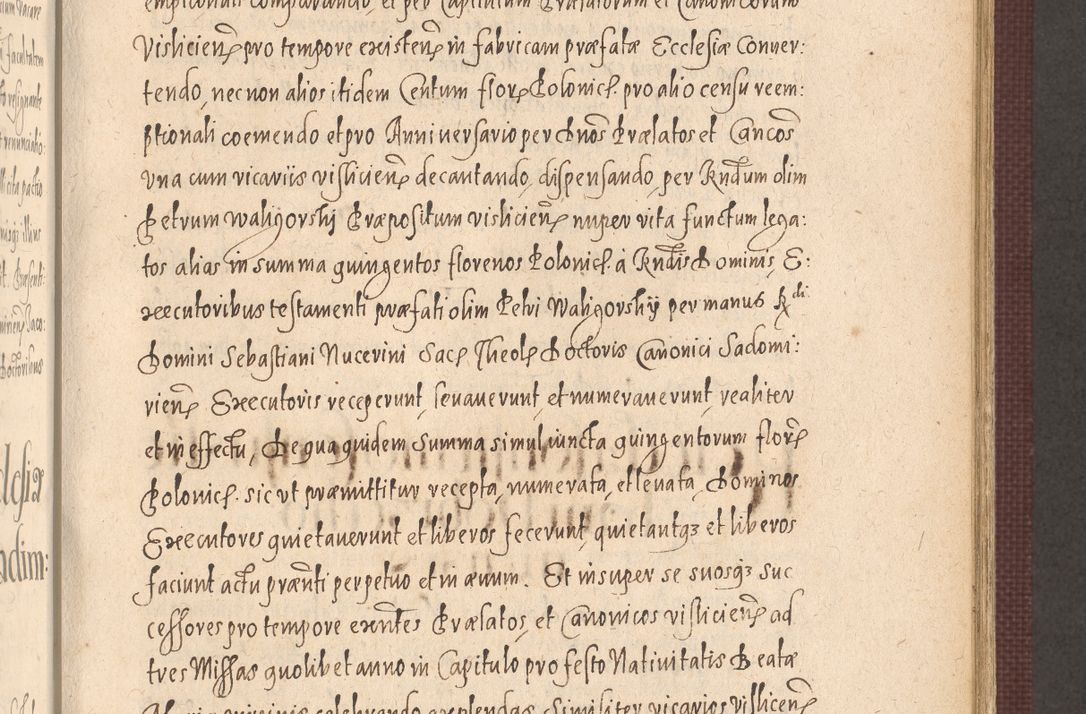 emptionali comparando et per Capitulum Prælatorum et Canonicorum
Visliciens pro tempore existens in fabricam præfatæ Ecclesiæ Conver:
tendo, nec non alios itidem Centum flors Polonics. pro alio censu reem:
ptionali coemendo et pro Anniversario per dnos Prælatos et Cancos
Vna cum vicariis visliciens decantando, dispensando, per Rndum olim
Petrum Waligorskÿ Præpositum visliciens nuper vita functum lega:
tos alias in summa quingentos florenos Polonics. à Rndis Dominis, E:
xecutoribus testamenti præfati olim Petri Waligorskÿ per manus Rdi
Domini Sebastiani Nucerini Sacs Theols Doctoris Canonici Sadomi:
riens Executoris receperunt, levaverunt, et numeraverunt, realiter
et in effectu, De qua quidem summa simul iuncta quingentorum flors
Polonics. sic ut præmittitur recepta, numerata, et levata, Dominos
Executores quietaverunt et liberos fecerunt, quietantqz et liberos
faciunt actu prænti perpetuo et in ævum. Et insuper se suosqz suc
cessores pro tempore exntes Prælatos, et Canonicos visliciens ad
tres Missas quolibet anno in Capitulo pro festo Nativitatis Beatæ
Mariæ virginis celebrando explendas similiter vicarios vislicens